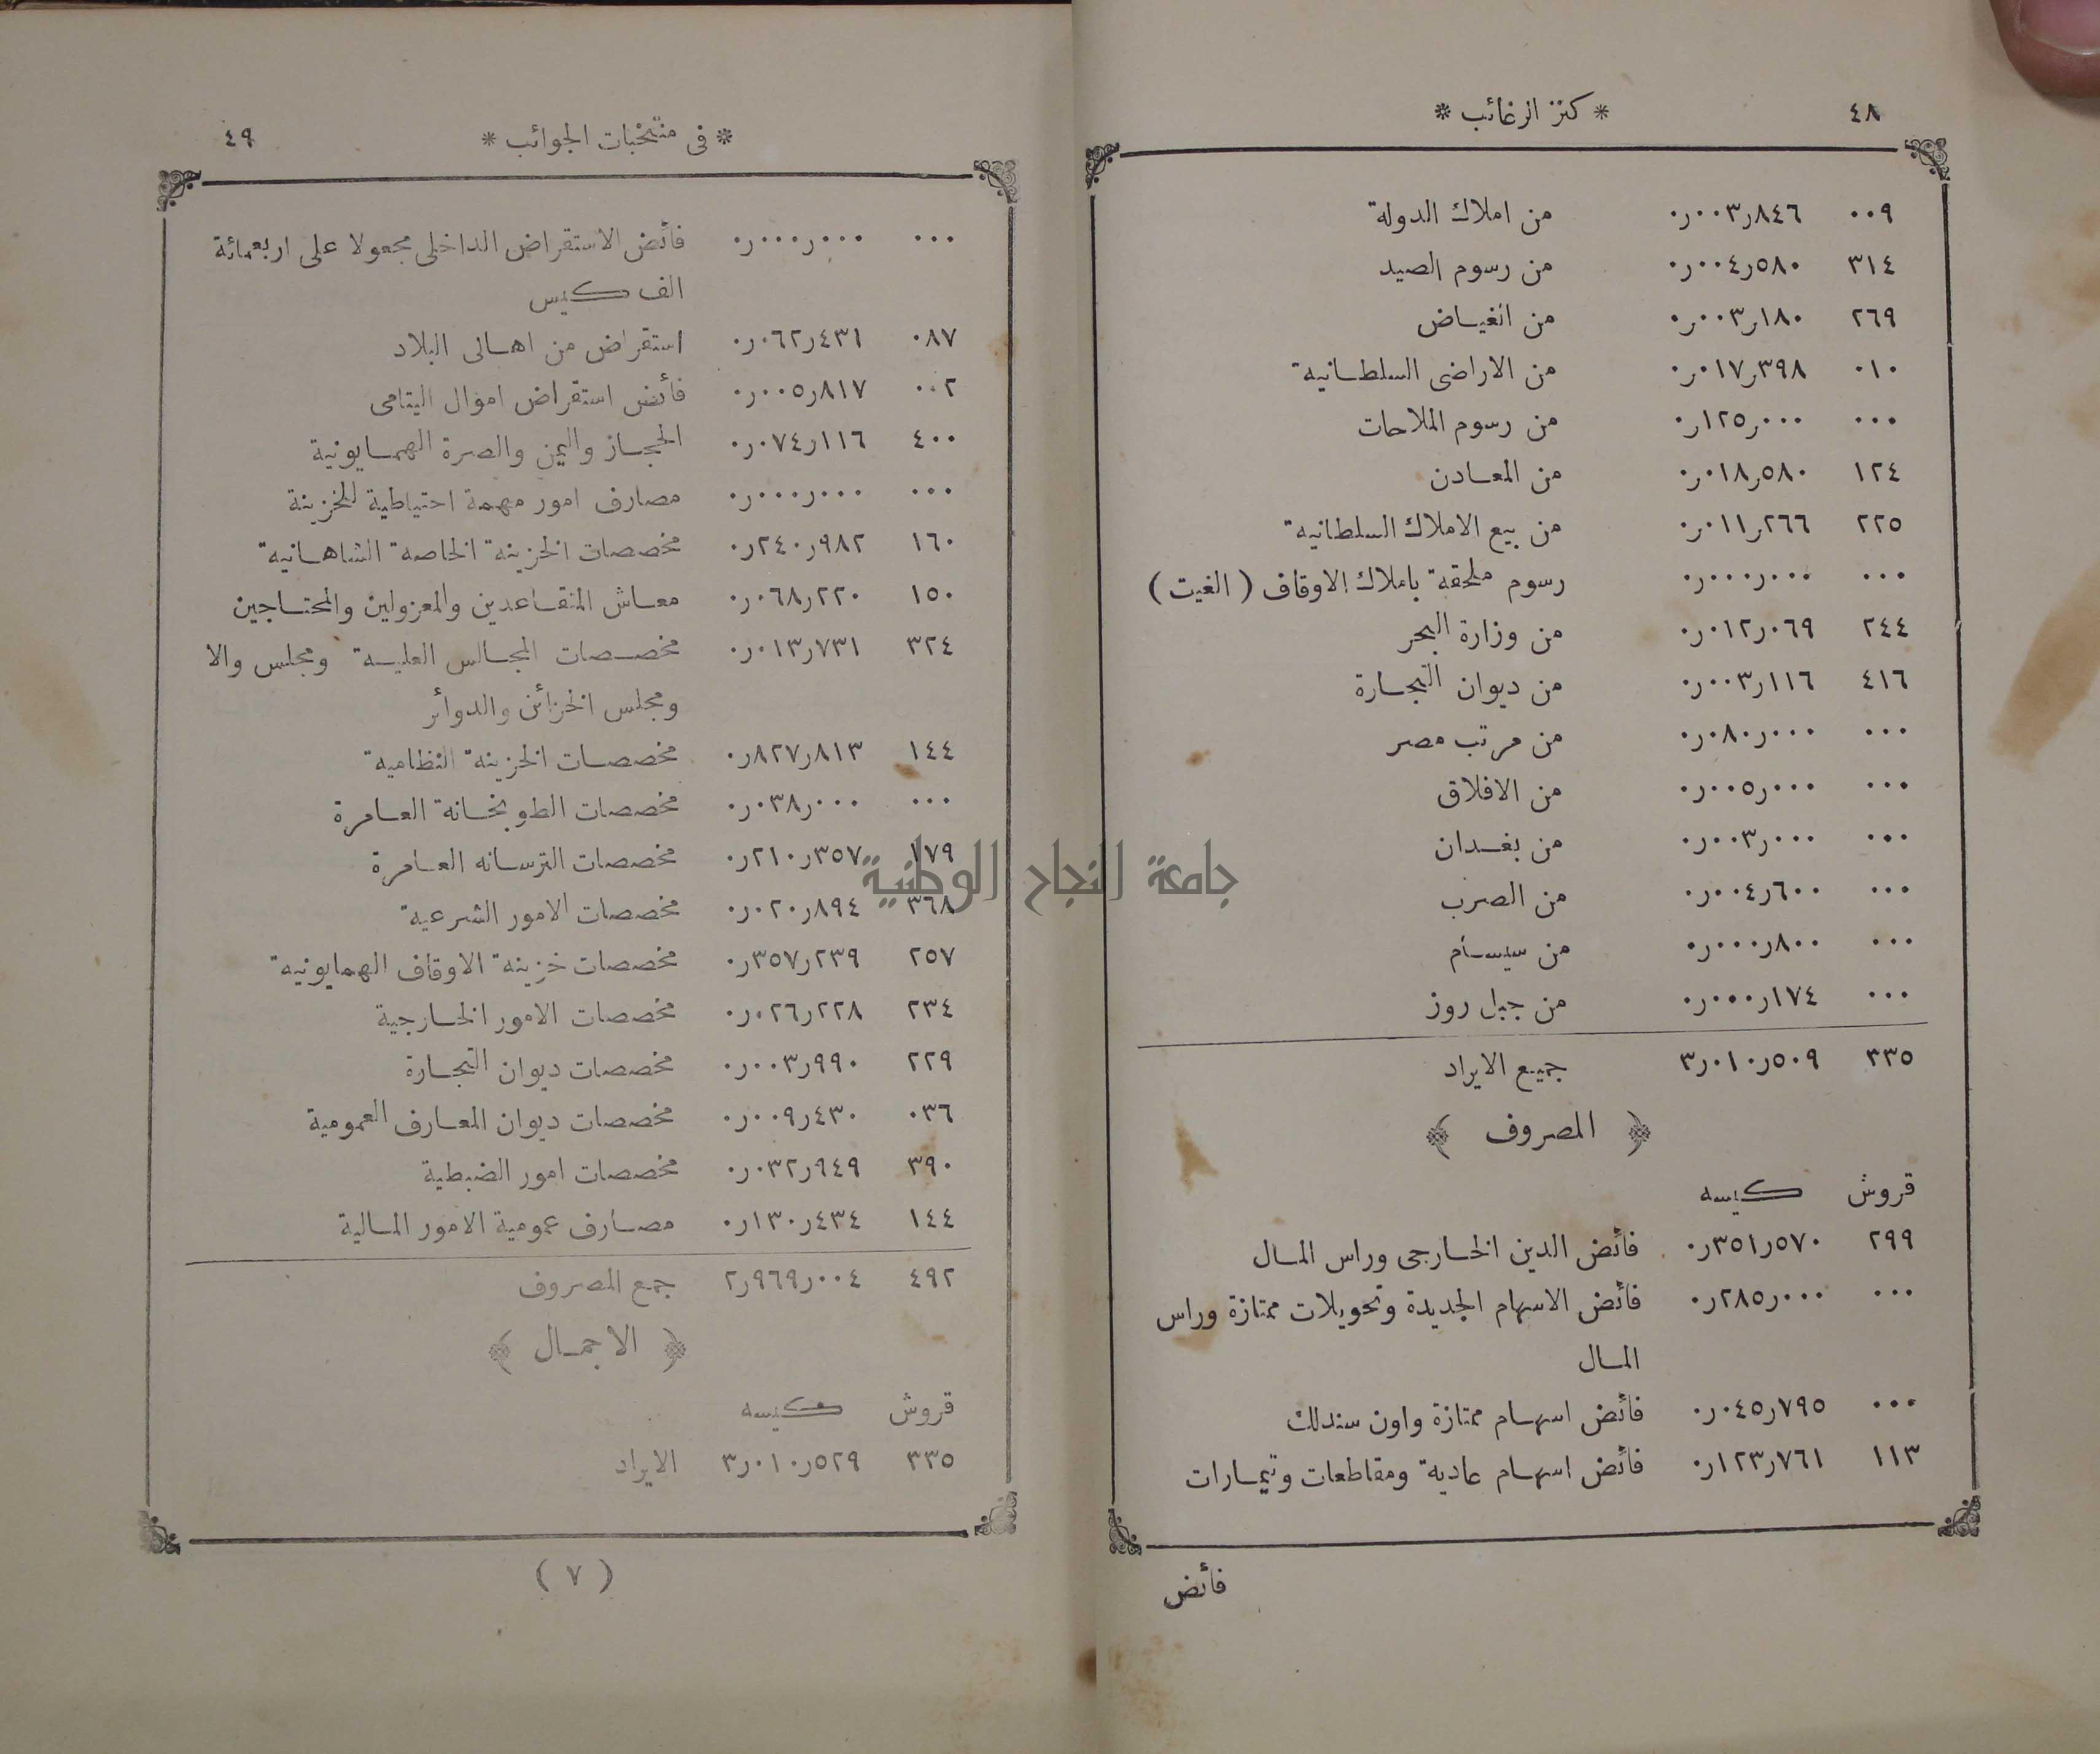 ٤٨ * كنز الرغائب *
٠٠٩ ٠٠٣ر٨٤٦ر٠ من املاك الدولة
٣١٤ ٠ر٠٠٤ر٥٨٠ من رسوم الصيد
٢٦٩ ٠ر٠٠٣ر١٨٠ من الغياض
٠١٠ ٠ر٠١٧ر٣٩٨ من الاراضى السلطانية
٠٠٠ ٠ر١٢٥ر٠٠٠ من رسوم الملاحات
١٢٤ ٠ر٠١٨ر٥٨٠ من المعادن
٢٢٥ ٠ر٠١١ر٢٦٦ من بيع الاملاك السلطانية
٠٠٠ ٠ر٠٠٠ر٠٠٠ رسوم ملحقة باملاك الاوقاف ( الغيت )
٢٤٤ ٠ر٠١٢ر٠٦٩ من وزارة البحر
٤١٦ ٠ر٠٠٣ر١١٦ من ديوان التجارة
٠٠٠ ٠ر٠٨٠ر٠٠٠ من مرتب مصر
٠٠٠ ٠ر٠٠٥ر٠٠٠ من الافلاق
٠٠٠ ٠ر٠٠٣ر٠٠٠ من بغدان
٠٠٠ ٠ر٠٠٤ر٦٠٠ من الصرب
٠٠٠ ٠ر٠٠٠ر٨٠٠ من سيسام
٠٠٠ ٠ر٠٠٠ر١٧٤ من جبل روز
٣٣٥ ٣ر٠١٠ر٥٠٩ جميع الايراد
﴿ المصروف ﴾
قروش كيسه
٢٩٩ ٠ر٣٥١ر٥٧٠ فائض الدين الخارجى وراس المال
٠٠٠ ٠ر٢٨٥ر٠٠٠ فائض الاسهام الجديدة وتحويلات ممتازة وراس
المال
٠٠٠ ٠ر٠٤٥ر٧٩٥ فائض اسهام ممتازة واون سندلك
١١٣ ٠ر١٢٣ر٧٦١ فائض اسهام عادية ومقاطعات وتيمارات
فائض
* فى منتخبات الجوائب * ٤٩
٠٠٠ ٠ر٠٠٠ر٠٠٠ فائض الاستقراض الداخلى مجعولا على اربعمائة
الف كيس
٠٨٧ ٠ر٠٦٢ر٤٣١ استقراض من اهالى البلاد
٠٠٢ ٠ر٠٠٥ر٨١٧ فائض استقراض اموال اليتامى
٤٠٠ ٠ر٠٧٤ر١١٦ الحجاز واليمن والصرة الهمايونية
٠٠٠ ٠ر٠٠٠ر٠٠٠ مصارف امور مهمة احتياطية للخزينة
١٦٠ ٠ر٢٤٠ر٩٨٢ مخصصات الخزينة الخاصة الشاهانية
١٥٠ ٠ر٠٦٨ر٢٢٠ معاش المتقاعدين والمعزولين والمحتاجين
٣٢٤ ٠ر٠١٣ر٧٣١ مخصصات المجالس العليه ومجلس والا
ومجلس الخزائن والدوائر
١٤٤ ٠ر٨٢٧ر٨١٣ مخصصات الخزينة النظامية
٠٠٠ ٠ر٠٣٨ر٠٠٠ مخصصات الطوبخانة العامرة
١٧٩ ٠ر٢١٠ر٣٥٧ مخصصات الترسانه العامرة
جامعة النجاح الوطنية
٣٦٨ ٠ر٠٢٠ر٨٩٤ مخصصات الامور الشرعية
٢٥٧ ٠ر٣٥٧ر٢٣٩ مخصصات خزينة الاوقاف الهمايونية
٢٣٤ ٠ر٠٢٦ر٢٢٨ مخصصات الامور الخارجية
٢٢٩ ٠ر٠٠٣ر٩٩٠ مخصصات ديوان التجارة
٠٣٦ ٠ر٠٠٩ر٤٣٠ مخصصات ديوان المعارف العمومية
٣٩٠ ٠ر٠٣٢ر٩٤٩ مخصصات امور الضبطية
١٤٤ ٠ر١٣٠ر٤٣٤ مصارف عمومية الامور المالية
٤٩٢ ٢ر٩٦٩ر٠٠٤ جمع المصروف
﴿ الاجمال ﴾
قروش كيسه
٣٣٥ ٣ر٠١٠ر٥٢٩ الايراد
( ٧ )